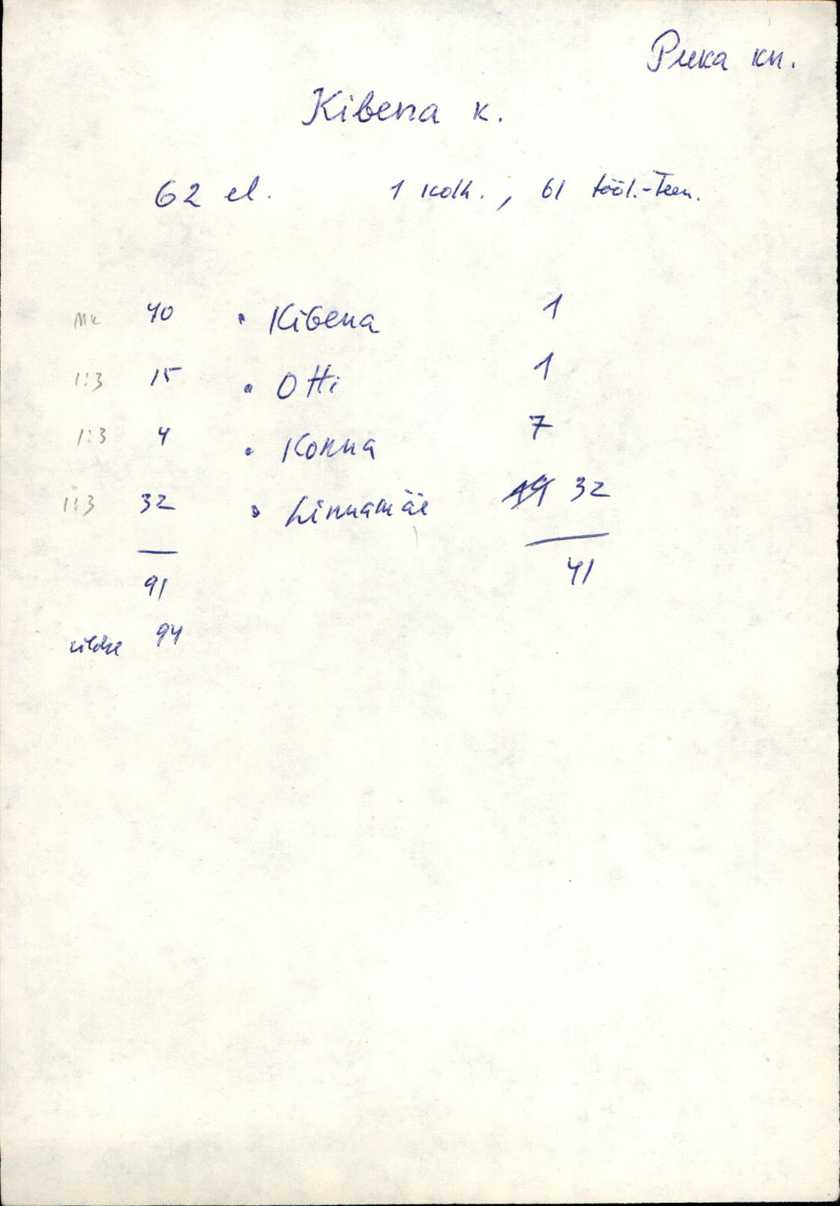 Puka kn.
Kibena k.
62 el. 1 kolh., 61 tööl.-teen.
Mk 40 • Kibena 1
1:3 15 • Otti 1
1:3 4 • Konna 7
1:3 32 • Linnamäe 32
91 41
üldse 94